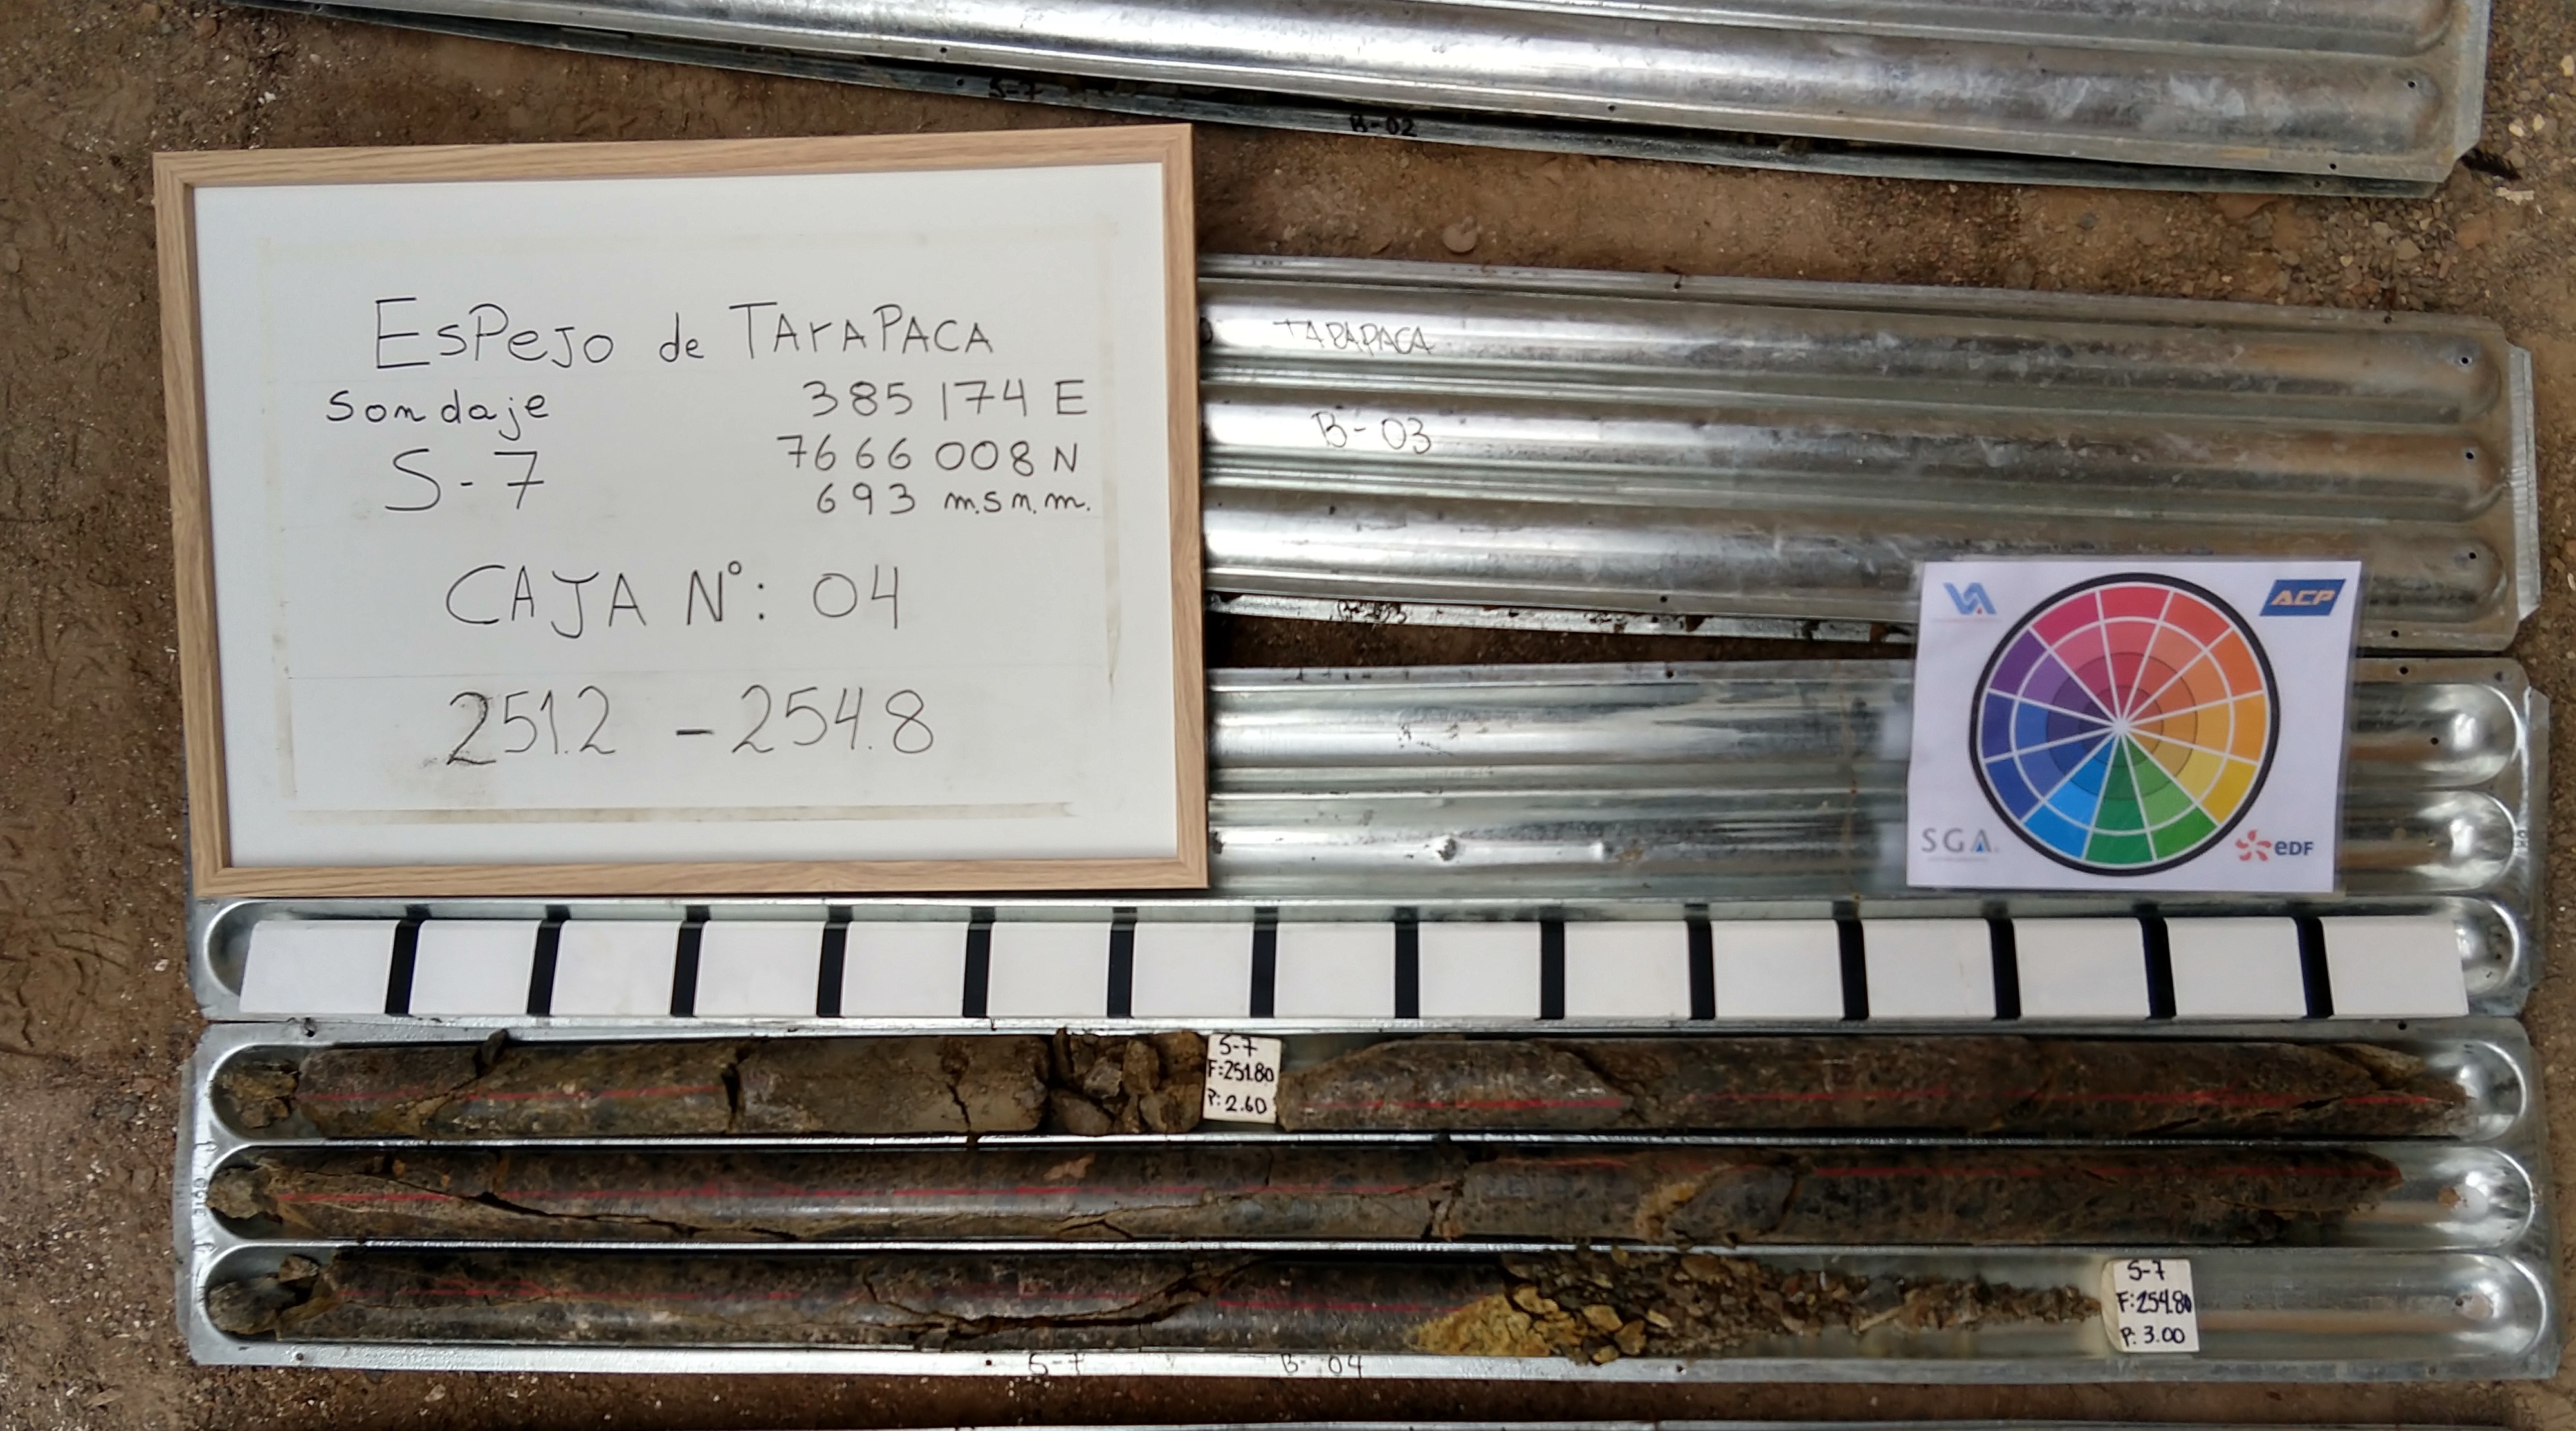 S-7
B-02
ESPEJO de TARAPACA
Sondaje
385 174 E
7666 008 N
S-7
693 m.s.n.m.
CAJA N°: 04
251.2 - 254.8
TARAPACA
B-03
VA
ACP
SGA
eDF
S-7
F:251.80
P: 2.60
S-7
F:254.80
P: 3.00
S-7
B-04